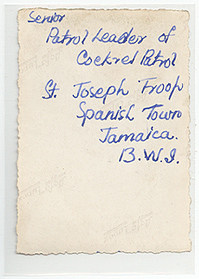 Senior
Patrol Leader of
Cockrel Patrol
St. Joseph Troop
Spanish Town
Jamaica.
B.W.I.